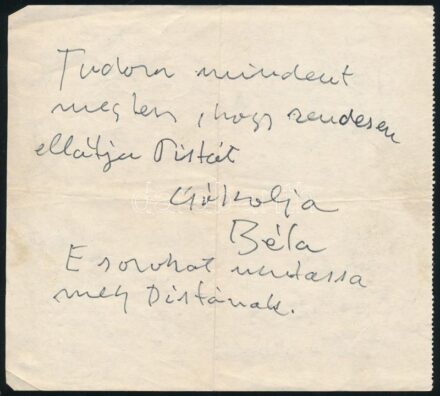 Tudom mindent
megtesz, hogy rendesen
ellátja Pistát
Csókolja
Béla
E sorokat mutassa
meg Pistának.